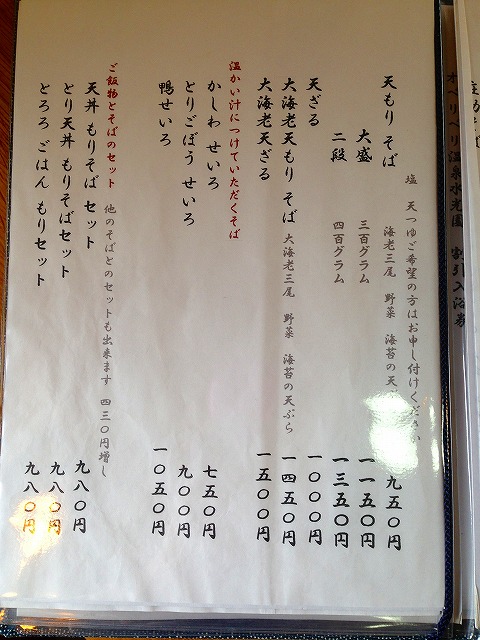 塩 天つゆご希望の方はお申し付けください
天もり そば 海老三尾 野菜 海苔の天ぷ 九五〇円
大盛 三百グラム 一一五〇円
二段 四百グラム 一三五〇円
天ざる 一〇〇〇円
大海老天もり そば 大海老三尾 野菜 海苔の天ぷら 一四五〇円
大海老天ざる 一五〇〇円
温かい汁につけていただくそば
かしわ せいろ 七五〇円
とりごぼう せいろ 九〇〇円
鴨せいろ 一〇五〇円
ご飯物とそばのセット 他のそばとのセットも出来ます 四三〇円増し
天丼 もりそば セット 九八〇円
とり天丼 もりそばセット 九八〇円
とろろ ごはん もりセット 九八〇円
オペリペリ温泉水光園 割引入浴券